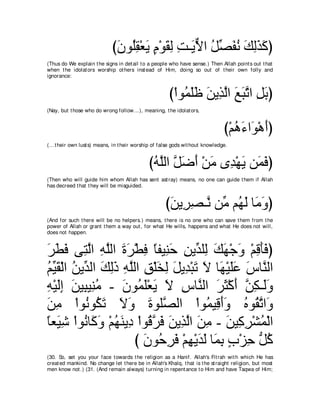 (كَذَلِكَ نُفَصِّلُ الاٌّيَـتِ لِقَوْمٍ يَعْقِلُونَ)
(Thus do We explain the signs in detail to a people who have sense.) Then Allah points out that
when the idolators worship others instead of Him, doing so out of their own folly and
ignorance:
(بَلِ اتَّبَعَ الَّذِينَ ظَلَمُواْ)
(Nay, but those who do wrong follow...), meaning, the idolators,
(أَهْوَاءَهُمْ)
(... their own lusts) means, in their worship of false gods without knowledge.
(فَمَن يَهْدِى مَنْ أَضَلَّ اللَّهُ)
(Then who will guide him whom Allah has sent astray) means, no one can guide them if Allah
has decreed that they will be misguided.
(وَمَا لَهُم مِّن نَّـصِرِينَ)
(And for such there will be no helpers.) means, there is no one who can save them from the
power of Allah or grant them a way out, for what He wills, happens and what He does not will,
does not happen.
(فَأَقِمْ وَجْهَكَ لِلدِّينِ حَنِيفاً فِطْرَةَ اللَّهِ الَّتِى فَطَرَ
النَّاسَ عَلَيْهَا لاَ تَبْدِيلَ لِخَلْقِ اللَّهِ ذَلِكَ الدِّينُ الْقَيِّمُ
وَلَـكِنَّ أَكْثَرَ النَّاسِ لاَ يَعْلَمُونَ - مُنِيبِينَ إِلَيْهِ
وَاتَّقُوهُ وَأَقِيمُواْ الصَّلَوةَ وَلاَ تَكُونُواْ مِنَ
الْمُشْرِكِينَ - مِنَ الَّذِينَ فَرَّقُواْ دِينَهُمْ وَكَانُواْ شِيَعاً
كُلُّ حِزْبٍ بِمَا لَدَيْهِمْ فَرِحُونَ )
(30. So, set you your face towards the religion as a Hanif. Allah's Fitrah with which He has
created mankind. No change let there be in Allah's Khalq, that is the straight religion, but most
men know not.) (31. (And remain always) turning in repentance to Him and have Taqwa of Him;